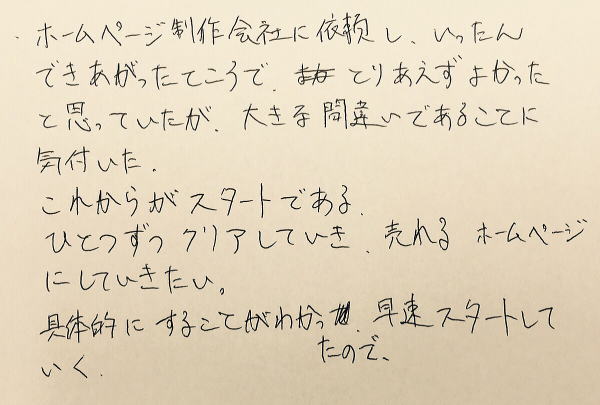 ホームページ制作会社に依頼し、いったん
できあがったところで、とりあえずよかった
と思っていたが、大きな間違いであることに
気付いた。
これからがスタートである。
ひとつずつクリアしていき、売れるホームページ
にしていきたい。
具体的にすることがわかっ、早速スタートして
たので、
いく。